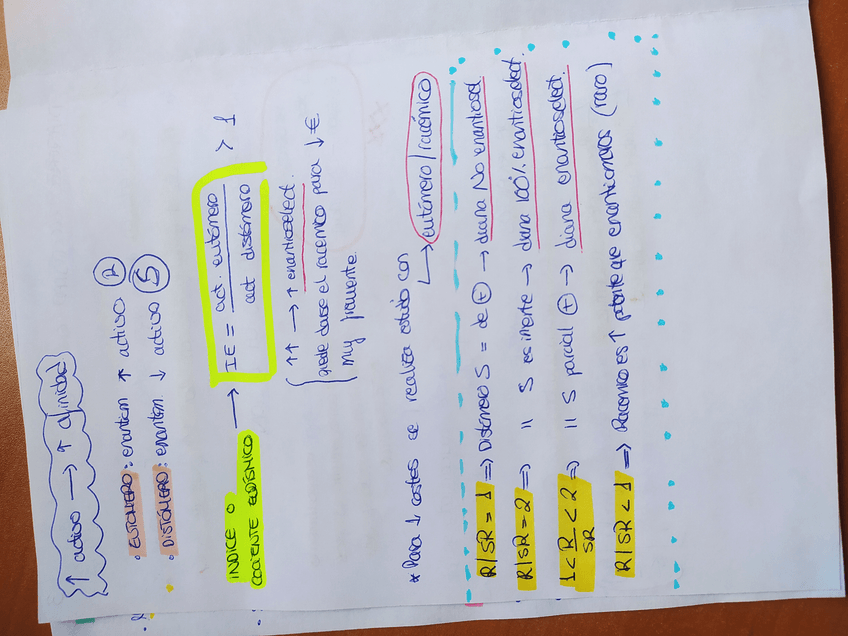 ↑ activo → ↑ afinidad
· EUTÓMERO: enantióm ↑ activo (R)
· DISTÓMERO: enantióm ↓ activo (S)
ÍNDICE O COCIENTE EUDÍSMICO → IE = act. eutómero / act distómero > 1
↑↑ → ↑ enantioselect.
puede darse el racémico para ↓ €
muy frecuente.
* Para ↓ costes se realiza estudio con
↳ eutómero / racémico
R/SR = 1 ⇒ Distómero S = de ⊕ → diana No enantiosel.
R/SR = 2 ⇒ " S es inerte → diana 100% enantioselect.
1 < R/SR < 2 ⇒ " S parcial ⊕ → diana enantioselect.
R/SR < 1 ⇒ Racémico es ↑ potente que enantiómeros (raro)